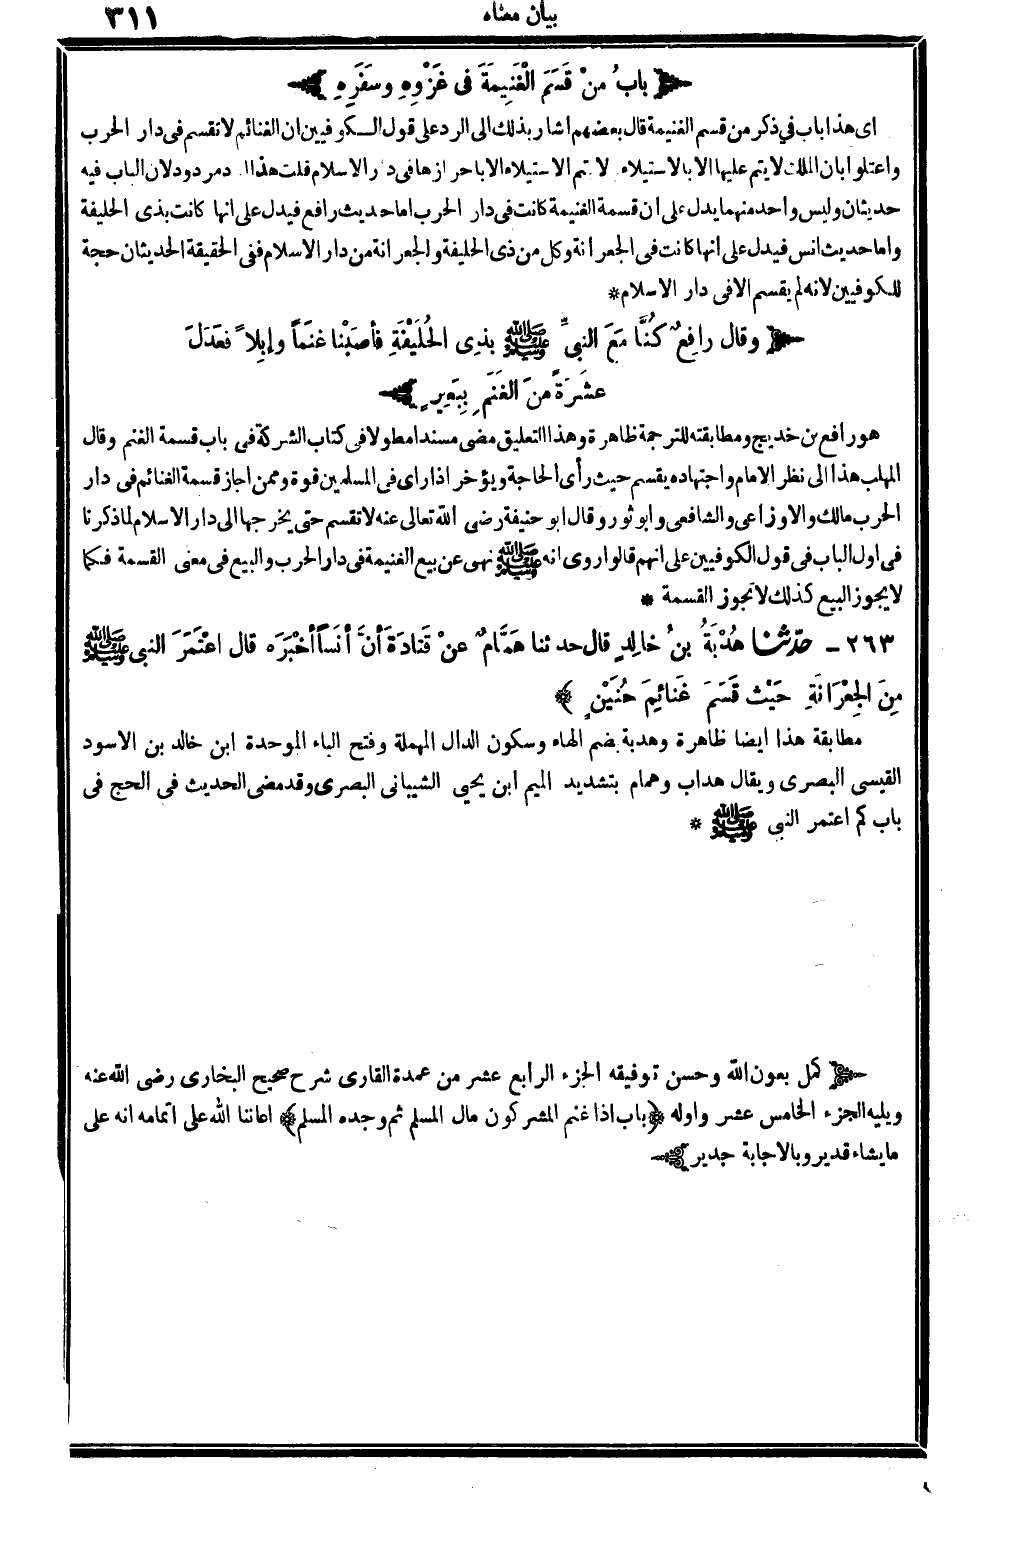 بيان معناه ٣١١
باب من قَسَمَ الْغَنِيمَةَ فى غَزْوِهِ وسَفَرِهِ
اى هذا باب في ذكر من قسم الغنيمة قال بعضهم اشار بذلك الى الرد على قول الكوفيين ان الغنائم لا تقسم فى دار الحرب
واعتلوا بان الملك لا يتم عليها الا بالاستيلاء ولا يتم الاستيلاء الا باحرازها فى دار الاسلام قلت هذا مردود لان الباب فيه
حديثان وليس واحد منهما يدل على ان قسمة الغنيمة كانت فى دار الحرب اما حديث رافع فيدل على انها كانت بذى الحليفة
واما حديث انس فيدل على أنها كانت فى الجعرانة وكل من ذى الحليفة والجعرانة من دار الاسلام ففى الحقيقة الحديثان حجة
للكوفيين لانه لم يقسم الا فى دار الاسلام *
وقال رافِعٌ كُنَّا مَعَ النبىِّ ﷺ بذى الحُلَيْفَةِ فأصَبْنا غنَماً وإبلاً فعَدَلَ
عشَرَةً منَ الغَنَمِ بِبَعِيرٍ
هو رافع بن خديج ومطابقته للترجمة ظاهرة وهذا التعليق مضى مسندا مطولا فى كتاب الشركة فى باب قسمة الغنم وقال
المهلب هذا الى نظر الامام واجتهاده يقسم حيث رأى الحاجة ويؤخر اذا راى فى المسلمين قوة وممن اجاز قسمة الغنائم فى دار
الحرب مالك والاوزاعى والشافعى وابو ثور وقال ابو حنيفة رضى الله تعالى عنه لا تقسم حتى يخرجها الى دار الاسلام لما ذكرنا
فى اول الباب فى قول الكوفيين على انهم قالوا روى انه ﷺ نهى عن بيع الغنيمة فى دار الحرب والبيع فى معنى القسمة فكما
لا يجوز البيع كذلك لا تجوز القسمة *
٢٦٣ - حدّثنا هُدْبَةُ بنُ خالِدٍ قال حدثنا همَّامٌ عنْ قَتادَةَ أنَّ أنَساً أخْبَرَه قال اعْتَمَرَ النبى ﷺ
مِنَ الجِعْرَانَةِ حَيْث قَسَمَ غَنائِمَ حُنَيْنٍ
مطابقة هذا ايضا ظاهرة وهدبة بضم الهاء وسكون الدال المهملة وفتح الباء الموحدة ابن خالد بن الاسود
القيسى البصرى ويقال هداب وهمام بتشديد الميم ابن يحيى الشيبانى البصرى وقد مضى الحديث فى الحج فى
باب كم اعتمر النبى ﷺ *
كمل بعون الله وحسن توفيقه الجزء الرابع عشر من عمدة القارى شرح صحيح البخارى رضى الله عنه
ويليه الجزء الخامس عشر واوله ﴿باب اذا غنم المشركون مال المسلم ثم وجده المسلم﴾ اعاننا الله على اتمامه انه على
ما يشاء قدير وبالاجابة جدير